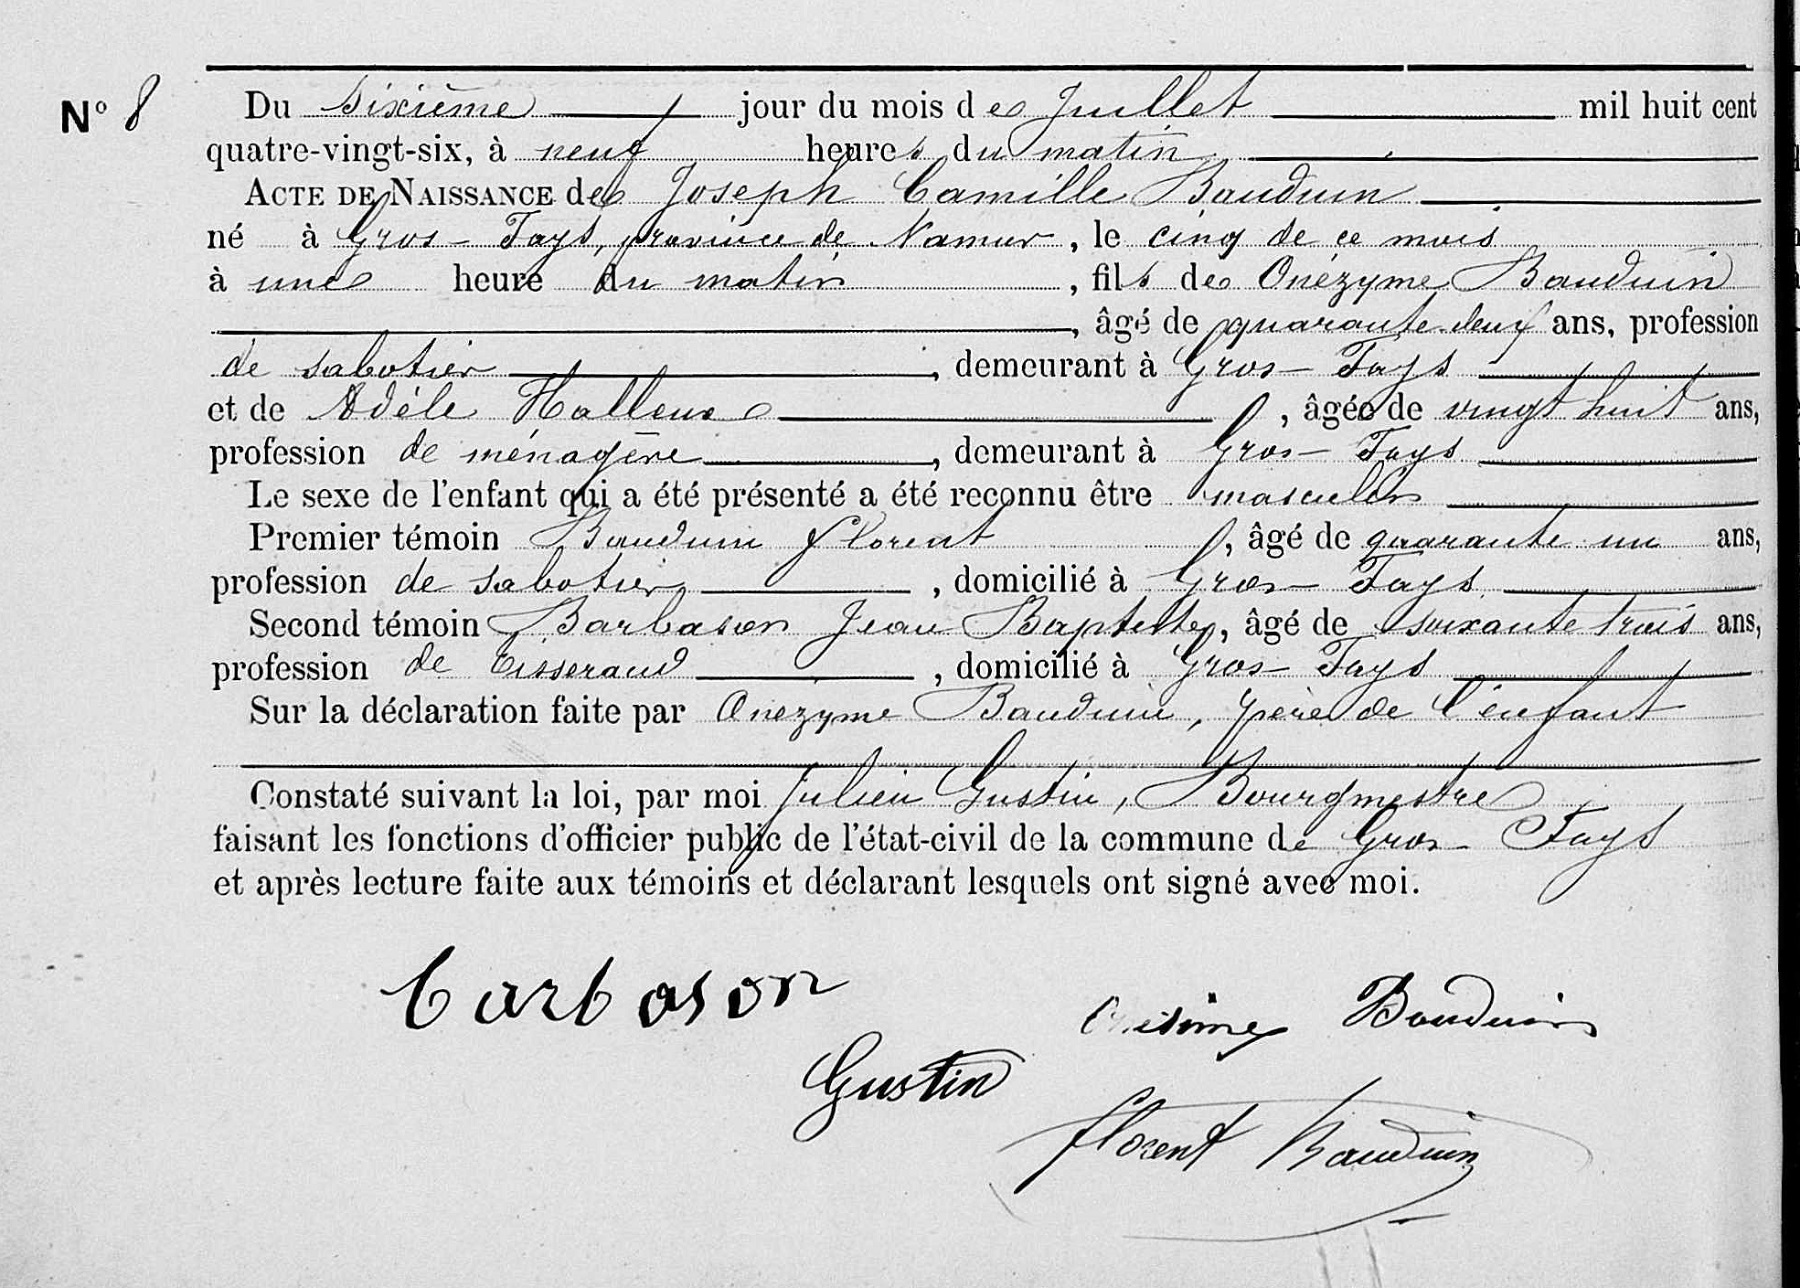 N° 8
Du sixième jour du mois de Juillet mil huit cent
quatre-vingt-six, à neuf heures du matin
ACTE DE NAISSANCE de Joseph Camille Bauduin
né à Gros-Fays, province de Namur, le cinq de ce mois
à une heure du matin, fils de Onézyme Bauduin
, âgé de quarante-deux ans, profession
de sabotier, demeurant à Gros-Fays
et de Adèle Halleux, âgée de vingt huit ans,
profession de ménagère, demeurant à Gros-Fays
Le sexe de l'enfant qui a été présenté a été reconnu être masculin
Premier témoin Bauduin Florent, âgé de quarante un ans,
profession de sabotier, domicilié à Gros-Fays
Second témoin Barbason Jean Baptiste, âgé de soixante trois ans,
profession de tisserand, domicilié à Gros-Fays
Sur la déclaration faite par Onézyme Bauduin, père de l'enfant
Constaté suivant la loi, par moi Julien Gustin, Bourgmestre
faisant les fonctions d'officier public de l'état-civil de la commune de Gros-Fays
et après lecture faite aux témoins et déclarant lesquels ont signé avec moi.
barbason
Onesime Bauduin
Gustin
florent Bauduin